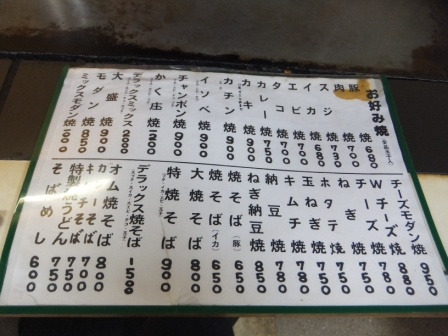 お好み焼
豚焼 680
肉焼 700
スジ焼 730
イカ焼 680
エビ焼 700
タコ焼 700
カレー焼 750
カキ焼 900
カチン焼 900
イソベ焼 900
チャンポン焼 900
かく庄焼 1200
デラックスミックス 2000
大盛焼 850
モダン焼 900
ミックスモダン焼
チーズモダン焼 950
Wチーズ焼 880
チーズ焼 750
ねぎ焼 750
ホタテ焼 750
玉ねぎ焼 750
キムチ焼 780
納豆焼 780
ねぎ納豆焼 850
焼そば(豚) 650
焼そば(イカ) 650
大焼そば 800
特焼そば 950
デラックス焼そば 1500
オム焼そば 800
カレーそば 700
キムチそば 750
特製焼うどん 750
そばめし 600